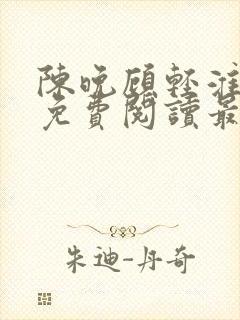 陳晚顧輕淮
免費閱讀最
朱迪-丹奇